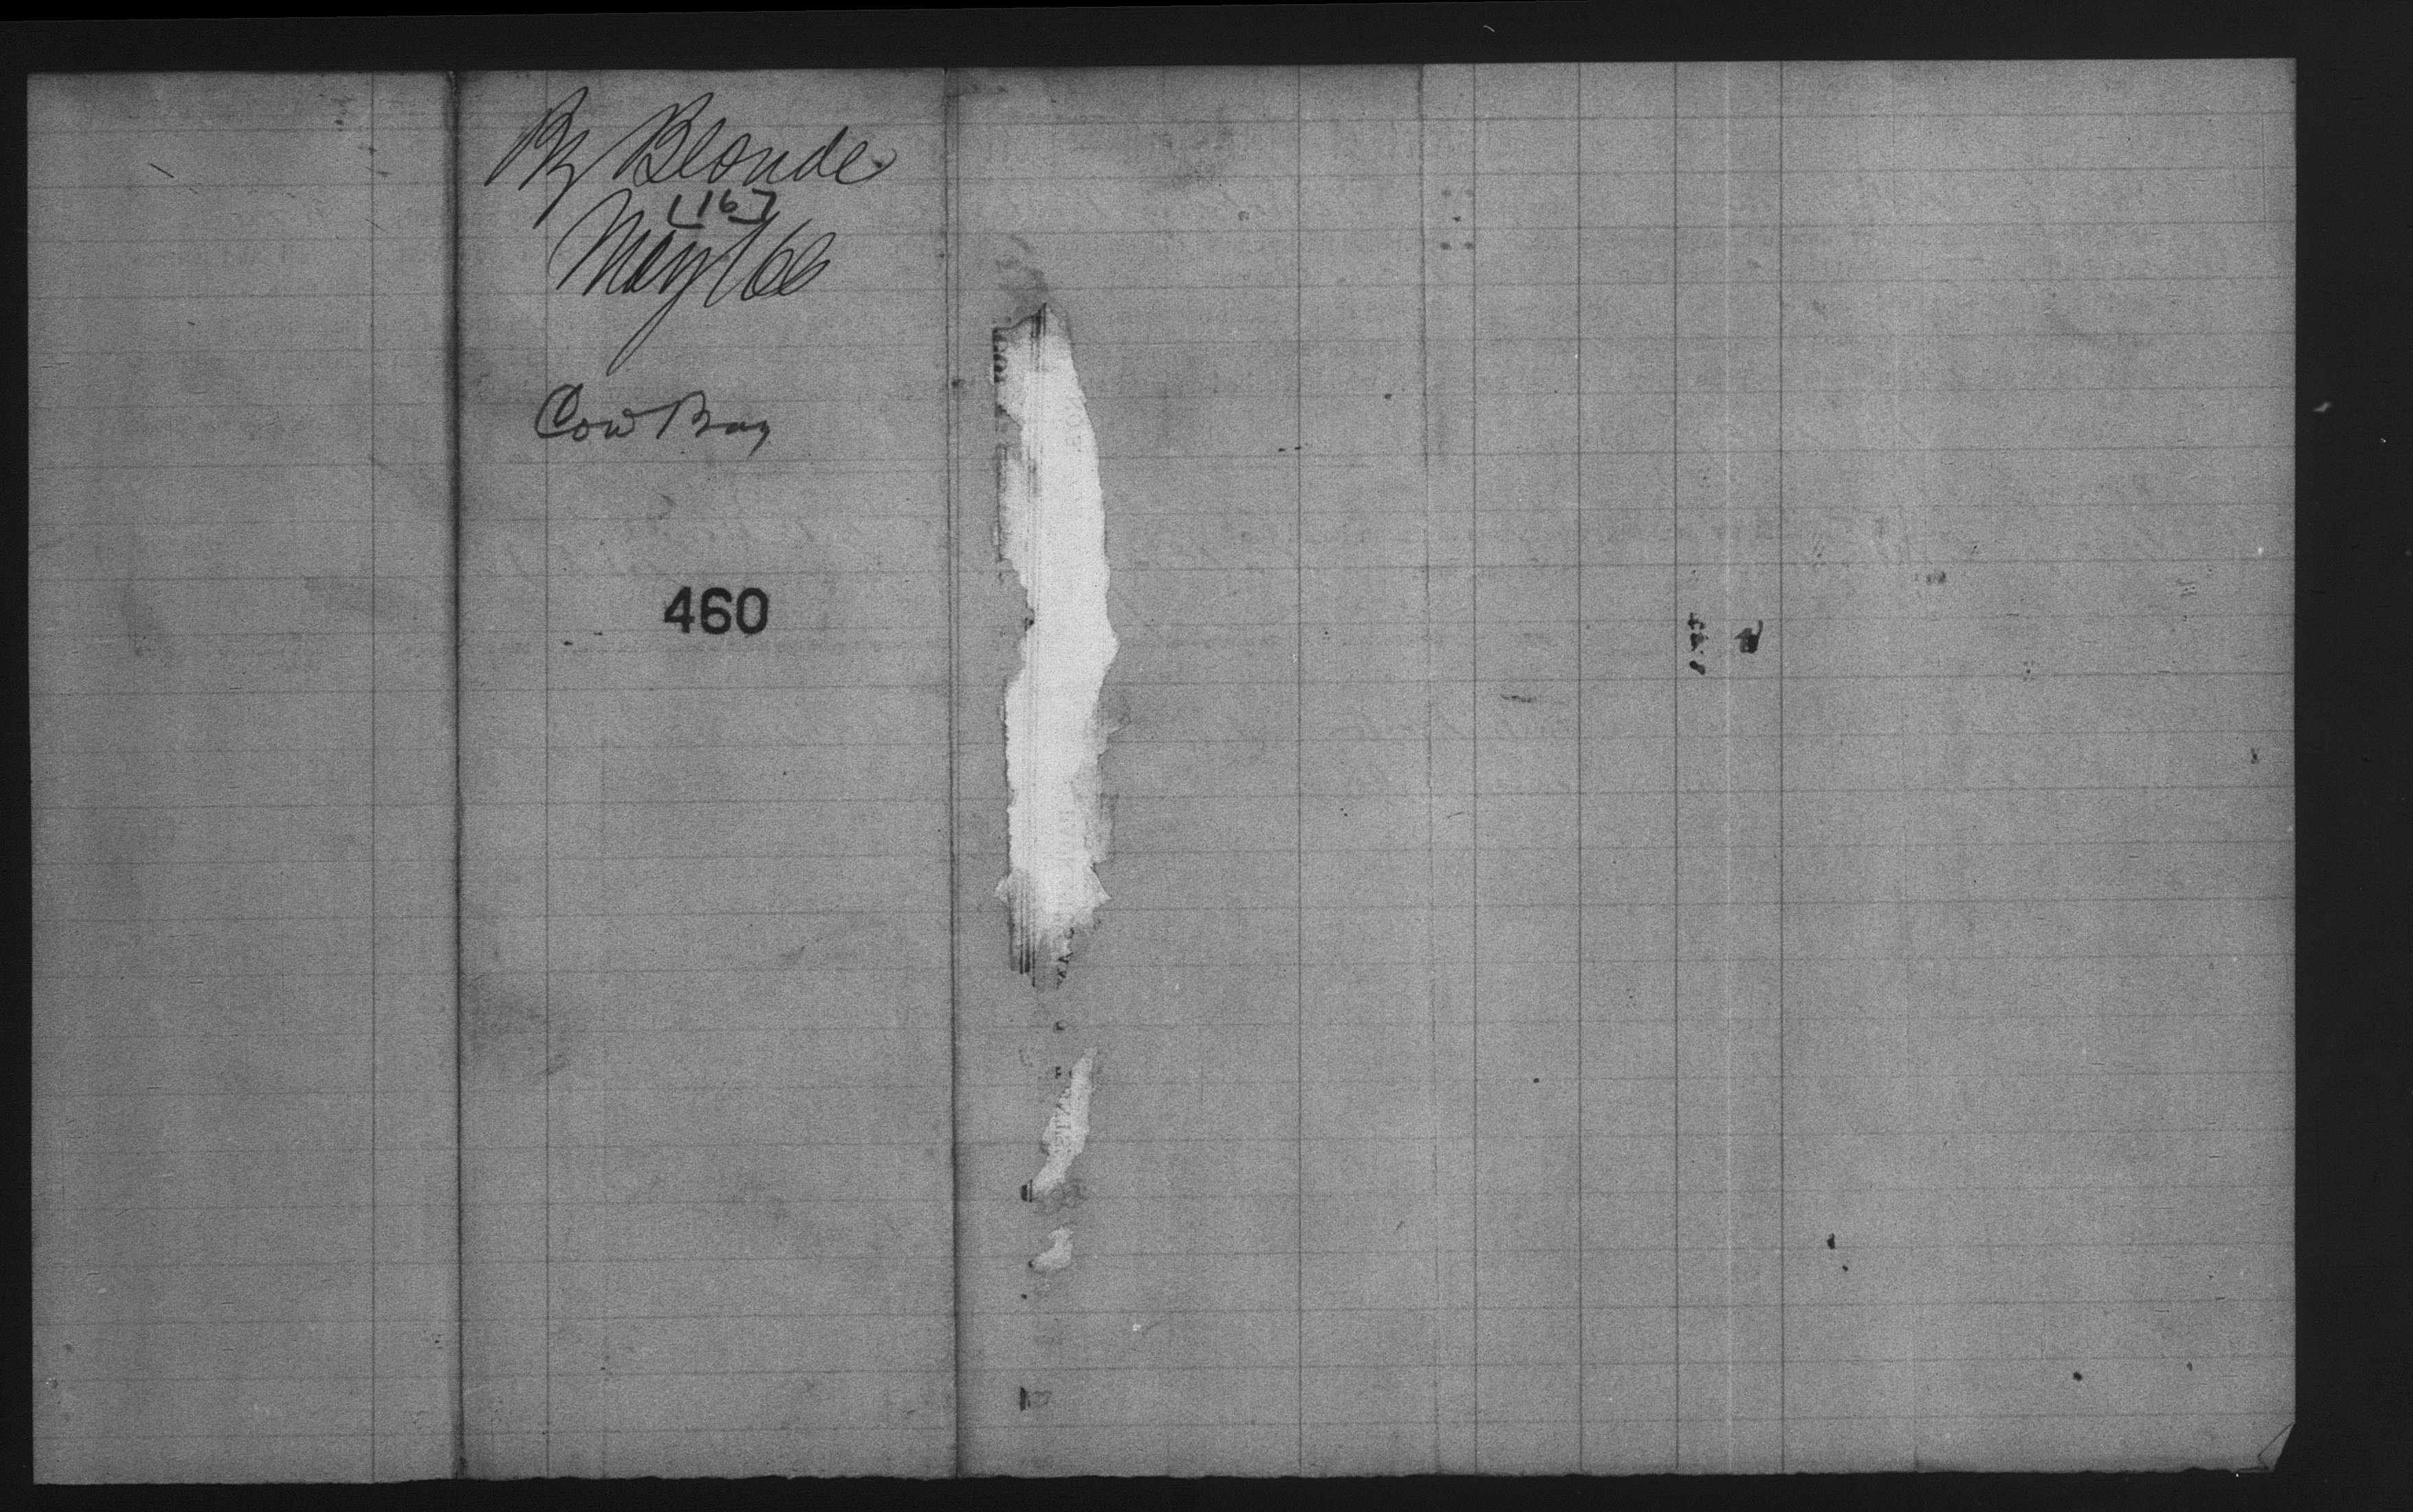 Bg Blonde
[16]
May 1/66
Cow Bay
460